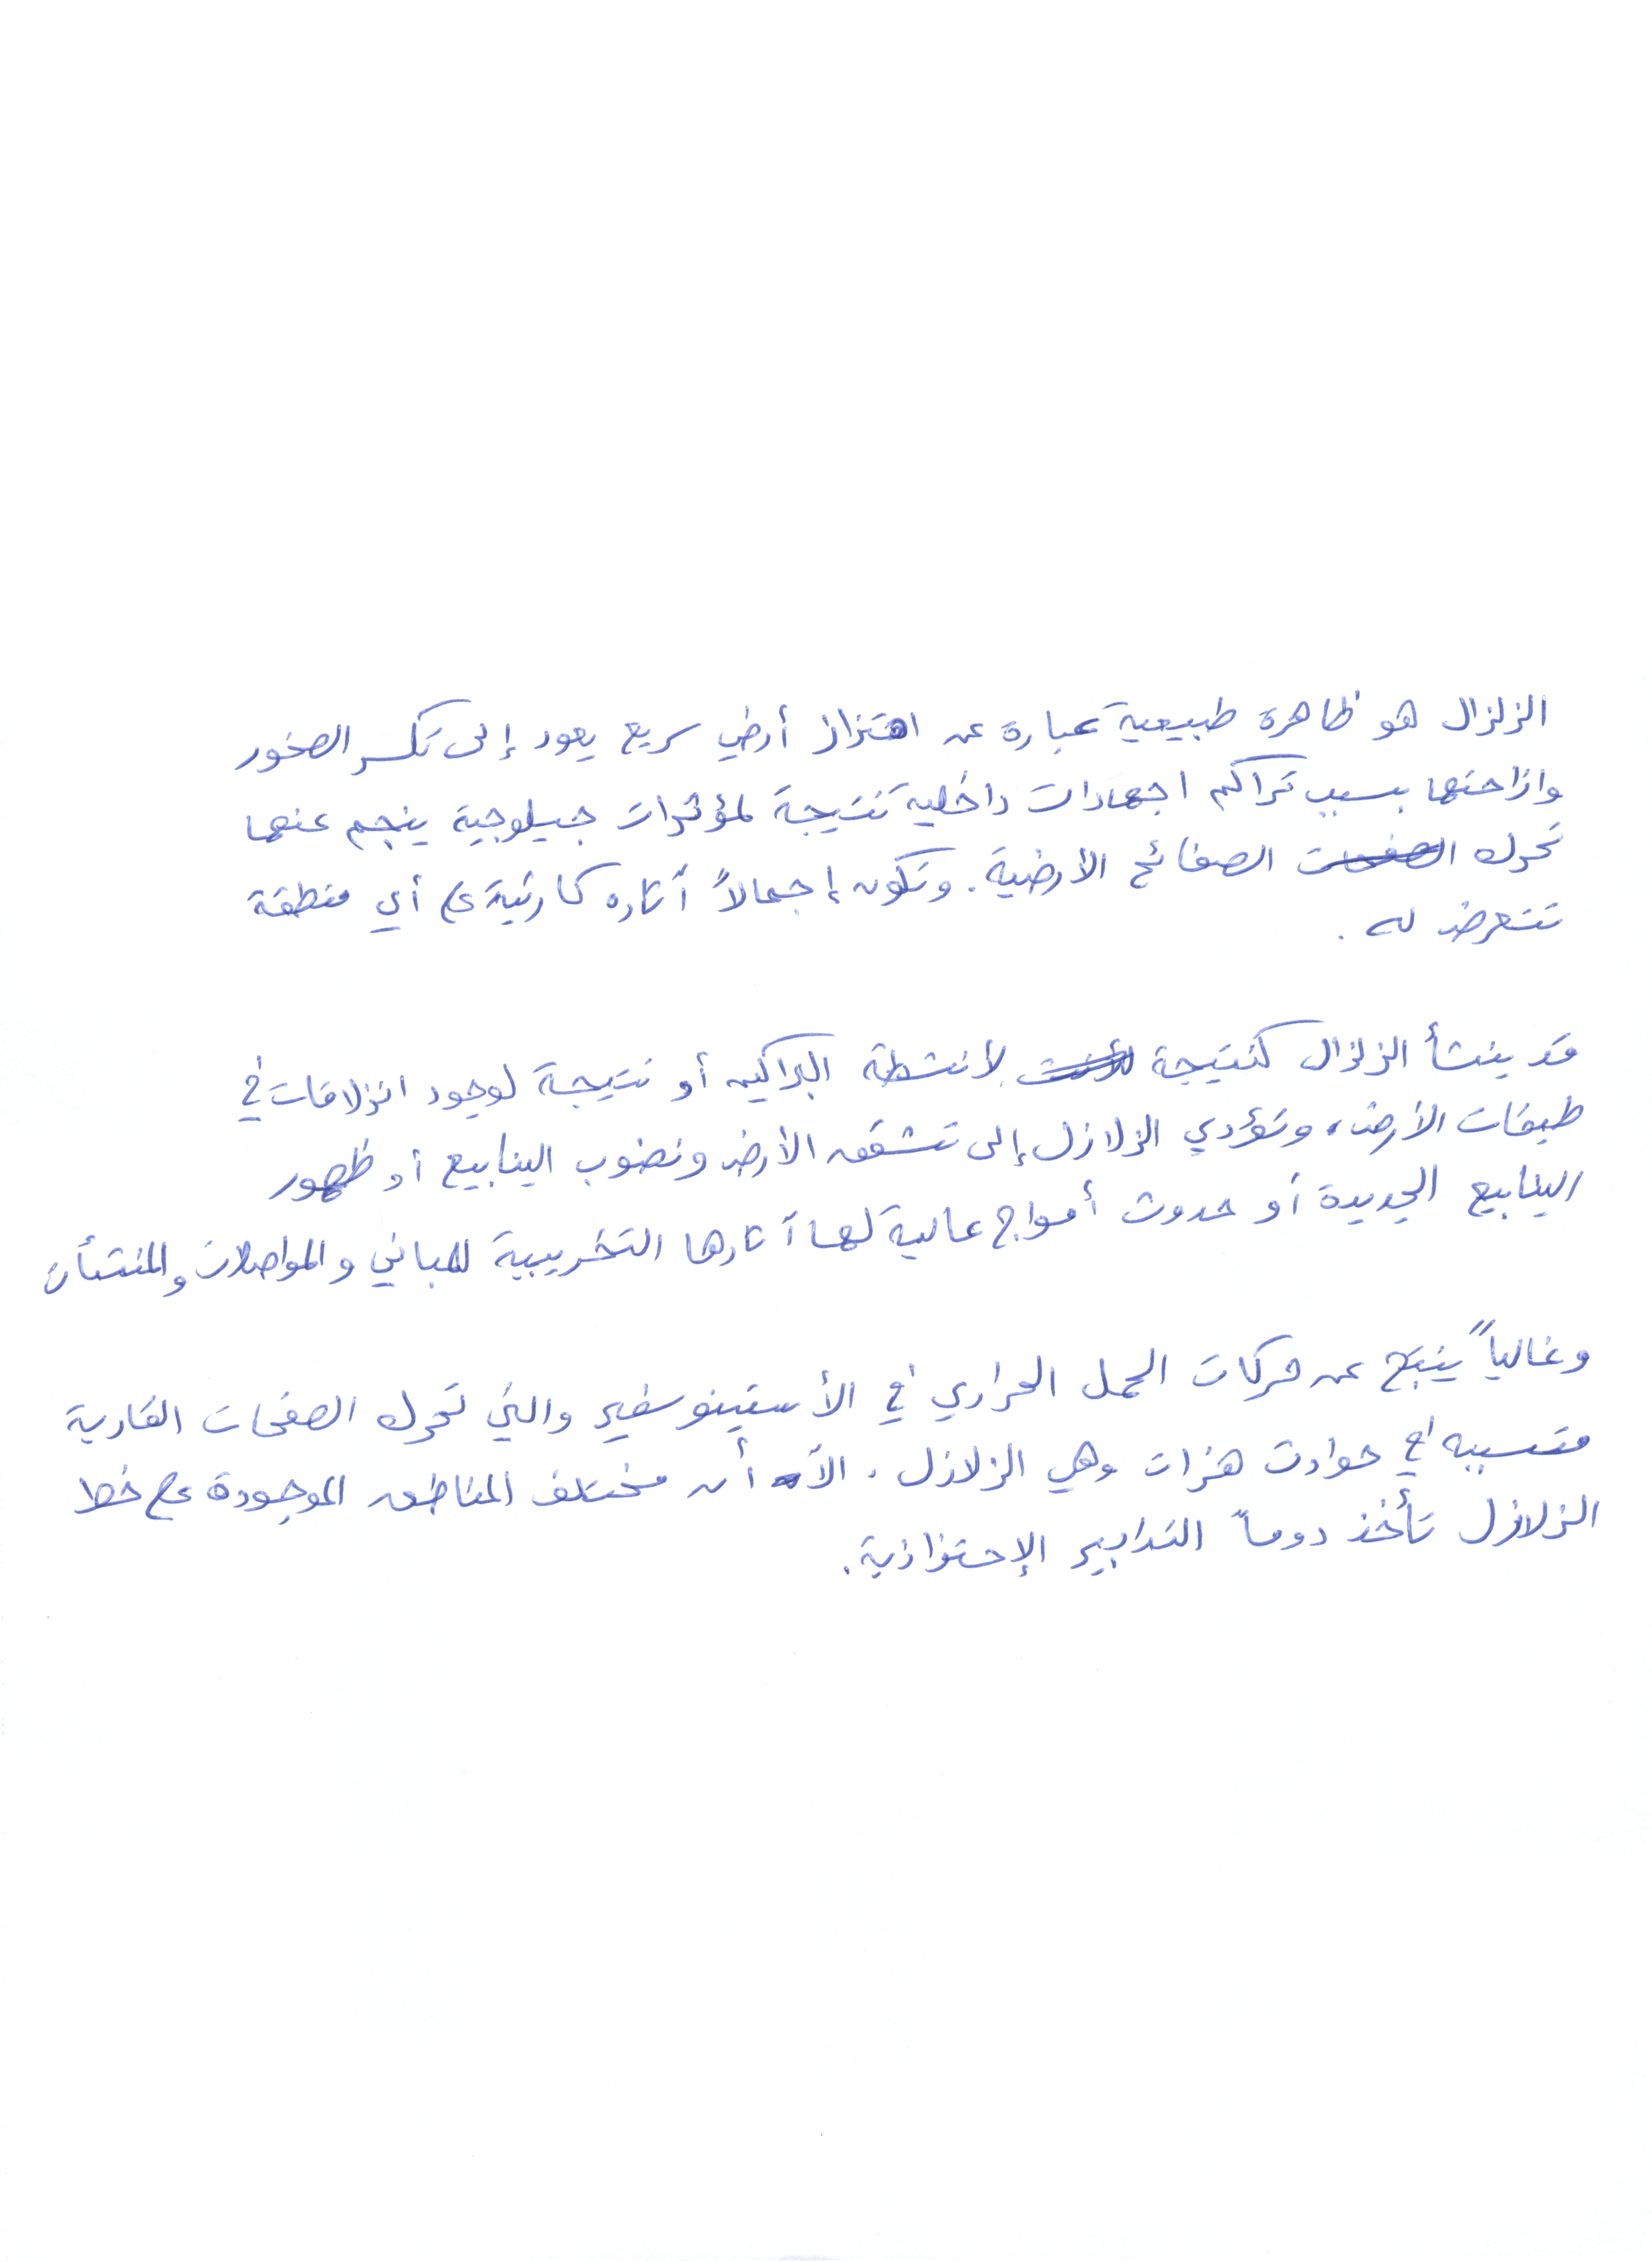 الزلزال هو ظاهرة طبيعية عبارة عن اهتزاز أرضي سريع يعود إلى تكسر الصخور
وازاحتها بسبب تراكم اجهادات داخلية نتيجة لمؤثرات جيلوجية ينجم عنها
تحرك الصفائح الأرضية. وتكون إجمالاً آثاره كارثية على أي منطقة
تتعرض له.
قد ينشأ الزلزال كنتيجة لأنشطة البراكين أو نتيجة لوجود انزلاقات في
طبقات الأرض، وتؤدي الزلازل إلى تشقق الأرض ونضوب الينابيع أو ظهور
الينابيع الجديدة أو حدوث أمواج عالية لها آثارها التخريبية للمباني والمواصلات والمنشأت
وغالباً ينتج عن حركات الحمل الحراري في الأستينوسفير والتي تحرك الصفحات القارية
متسببه في حوادث هزات وهي الزلازل. الآ أن مختلف المناطق الموجودة على خط
الزلازل تأخذ دوماً التدابير الإحترازية.